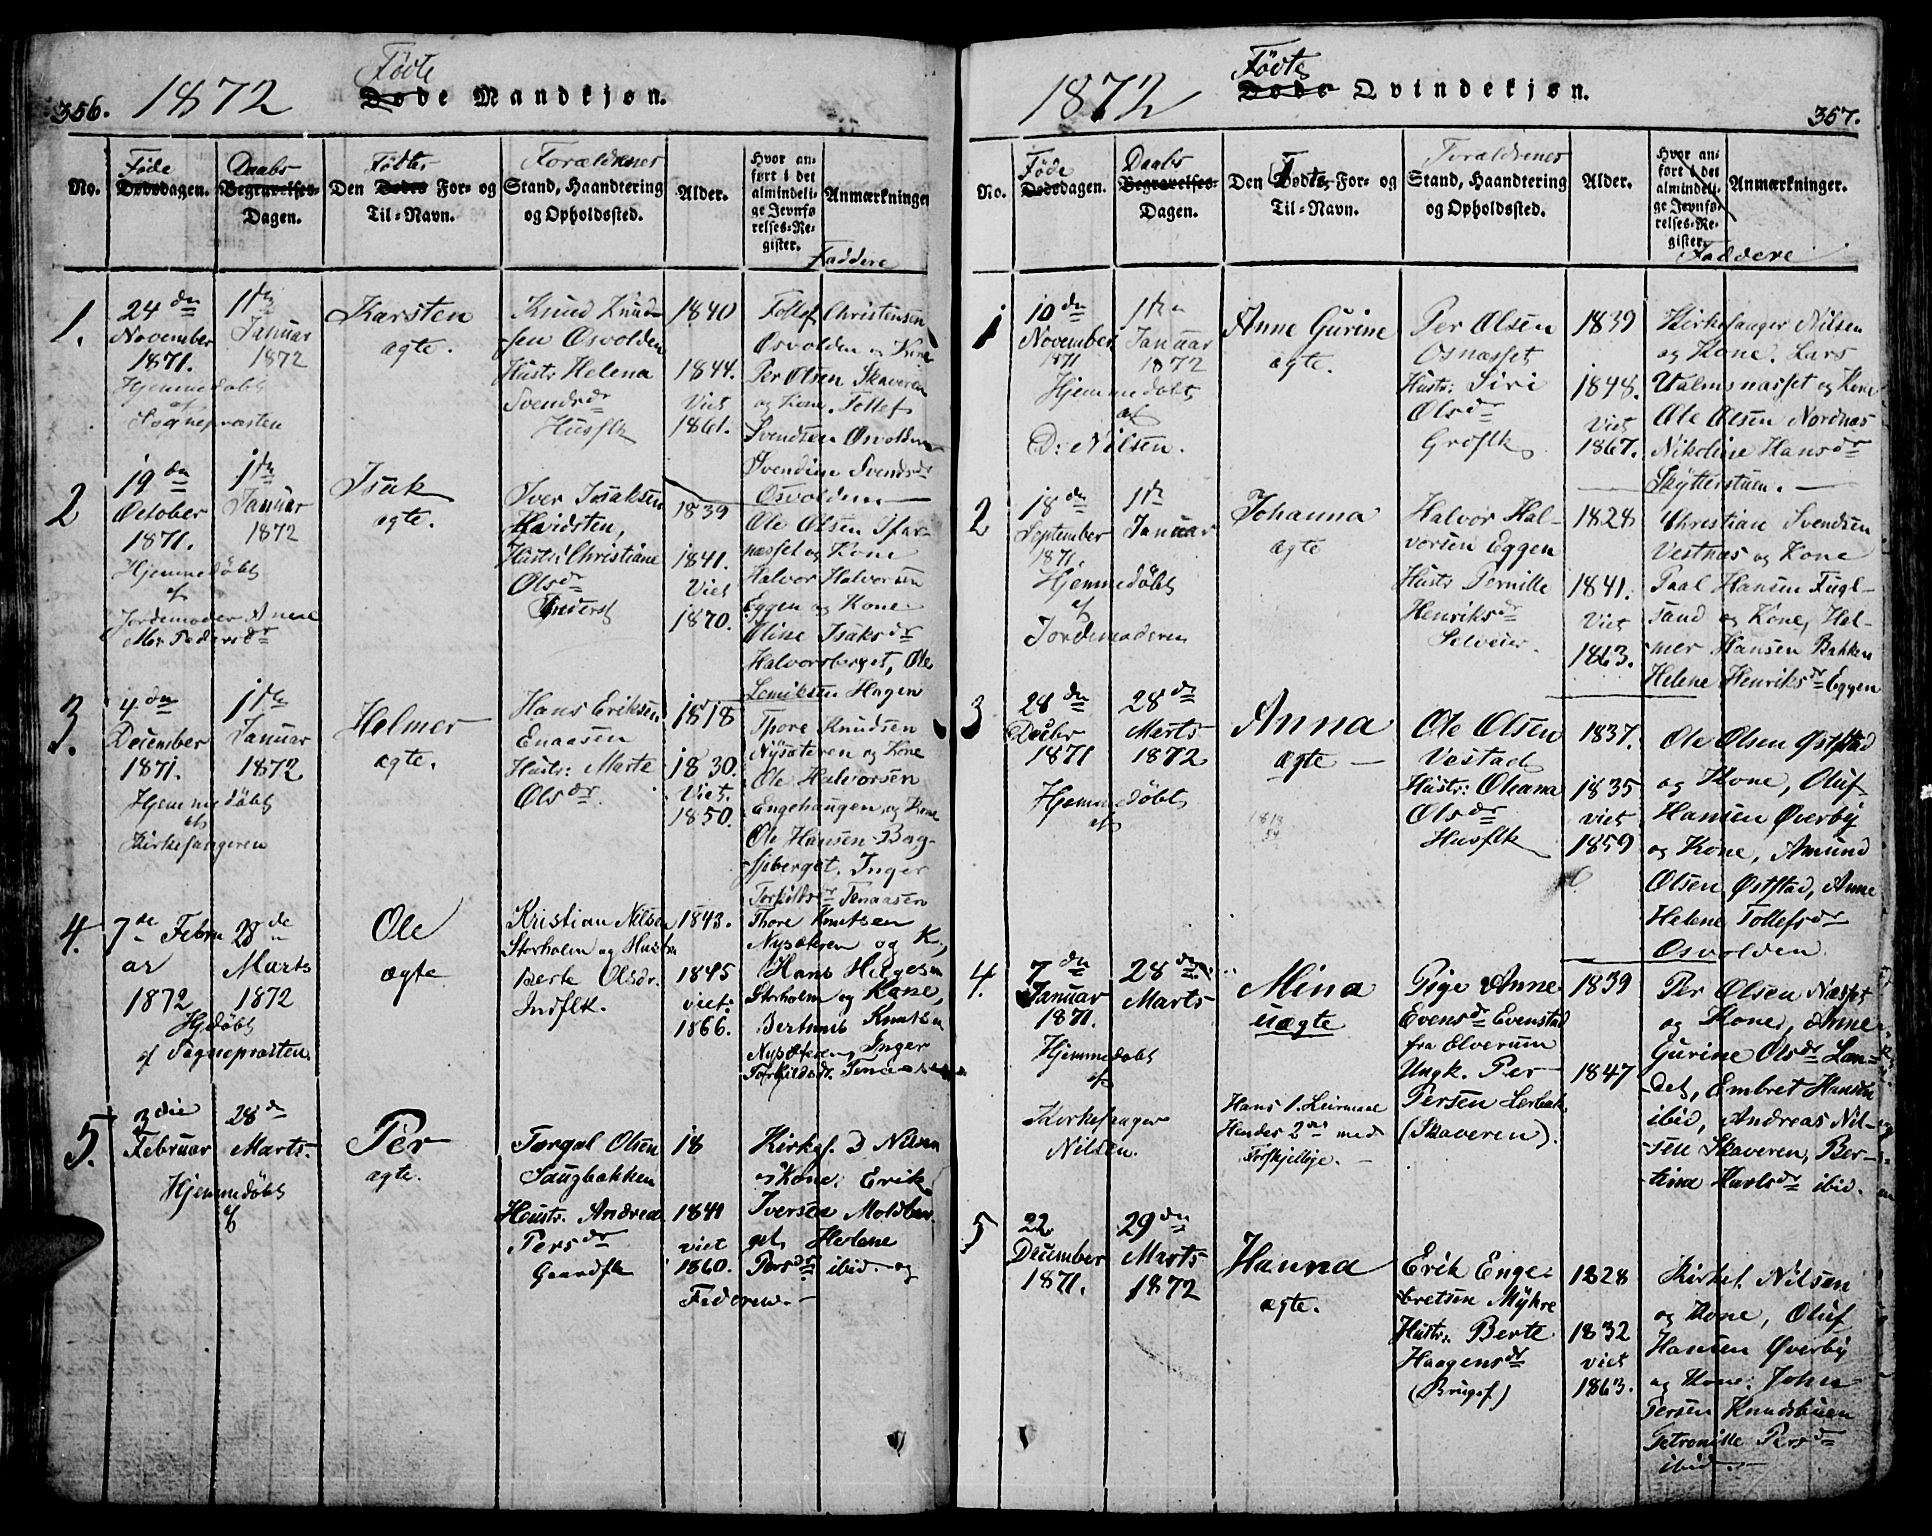 356. 1872 Fødte Døde Mandkjøn.
No.
Føde Dødsdagen.
Daabs Begravelses-Dagen.
Den Fødtes Dødes For- og Til-Navn.
Forældrenes Stand, Haandtering og Opholdssted.
Alder.
Hvor anført i det almindelige Jevnførelses-Register.
Anmærkninger
Faddere
1.
24de
November
1871.
Hjemmedøbt
af
Sognepræsten
1ste
Januar
1872
Karsten
ægte.
Knud Knud-
sen Osvolden
Hustr Helena
Svendsdr
Husflk
1840
1844.
Viet
1861.
Tollef Christensen
Osvolden og Kone
Per Olsen Skaveren
og Kone. Tollef
Svendsen Osvolden
Svendine Svendsdr
Osvolden
2
19de
October
1871.
Hjemmedøbt
af
Jordemoder Anne
Mor Pedersdr
1ste
Januar
1872
Isak
ægte.
Iver Isaksen
Kvidsten,
Hustr: Christiane
Olsdr
Inderst
1839
1841.
Viet
1870.
Ole Olsen
næsset og Kone
Halvor Halvorsen
Eggen og Kone
Isaksdr
Halvorsberget, Ole
Hagen
3.
4de
December
1871.
Hjemmedøbt
af
Kirkesangeren
1ste
Januar
1872
Helmer
ægte.
Hans Eriksen
Enaasen
Hustr: Marte
Olsdr.
1818
1830.
Viet.
1850.
Thore Knudsen
Nysæteren og Kone
Ole Halvorsen
Engehaugen og Kone
Ole Hansen Bag-
berget. Inger
Torkildsdr Tenaasen
4.
7de Febru
ar
1872
Hjdøbt
af Sognepræsten
28de
Marts
1872
Ole
ægte
Kristian Nilsen
Storholm og Hustru
Berte Olsdr.
Indflk.
1843.
1845
viet:
1866.
Thore Knutsen
Nysæteren og K.,
Hans Helgesen
Storholm og Kone,
Knutsen
Nysæteren, Inger
Torkildsdr. Tenaasen
5.
3die
Februar
Hjemmedøbt
af
28de
Marts.
Per
ægte.
Torgal Olsen
Saugbakken
Hustr. Andrea
Persdr
Gaardflk
18
1841
viet
1860.
Kirkes. D Nilsen
og Kone. Erik
Iversen Moldber
get, Helene
Persdr ibid. og
Faderen.
1872 Fødte Døde Qvindekjøn. 357.
No.
Føde Dødsdagen.
Daabs Begravelses-Dagen.
Den Fødtes For- og Til-Navn.
Forældrenes Stand, Haandtering og Opholdssted.
Alder.
Hvor anført i det almindelige Jevnførelses-Register.
Anmærkninger.
Faddere
1
10de
November
1871
Hjemmedøbt
af
D: Nilsen.
1ste
Januar
1872
Anne Gurine
ægte.
Per Olsen
Osnæsset
Hustr: Siri
Olsdr
Grdflk
1839
1848.
Viet
1867.
Kirkesanger Nilsen
og Kone. Lars
Valmsnæsset og Kone
Ole Olsen Nordnæs
Nikoline Hansdr
Skytterstuen.
2
18de
September
1871.
Hjemmedøbt
af
Jordemoderen
1ste
Januar
Johanna
ægte
Halvor Hal-
vorsen Eggen
Hustr Pernille
Henriksdr
Selveier.
1828
1841.
Viet
1863.
Christian Svendsen
Vestnæs og Kone
Paal Hansen Fugl-
sand og Kone, Hel-
mer Hansen Bakken
Helene Henriksdr Eggen
3
28de
Decbr
1871
Hjemmedøbt
af
28de
Marts
1872
Anna
ægte
Ole Olsen
Vestad
Hustr: Oleana
Olsdr
Husflk
1837.
1835
viet
1859
Ole Olsen Øststad
og Kone, Oluf
Hansen Øverby
og Kone, Amund
Olsen Øststad, Anne
Helene Tollefsdr
Osvolden.
4.
7de
Januar
1871.
Hjemmedøbt
af
Kirkesanger
Nilsen.
28de
Marts
Mina
uægte
Hans 1. Leirmaal
Hendes 2det med
forskjellige.
Pige Anne
Evensdr Evenstad
fra Elverum
Ungk. Per
Persen Lerbak
(Skaveren).
1839
1847
Per Olsen Næsset
og Kone, Anne
Gurine Olsdr Lan-
det, Embret Hansen
ibid, Andreas Nil-
sen Skaveren, Ber-
tina Karlsdr ibid.
5
22
December
1871.
29de
Marts
1872
Hanna
ægte.
Erik Enge-
bretsen Myhre
Hustr: Berte
Haagensdr
(Brugsf)
1828
1832
viet
1863.
Kirkes. Nilsen
og Kone, Oluf
Hansen Øverby
og Kone: John
Persen Knudsbuen
Petronille Persdr
ibid.